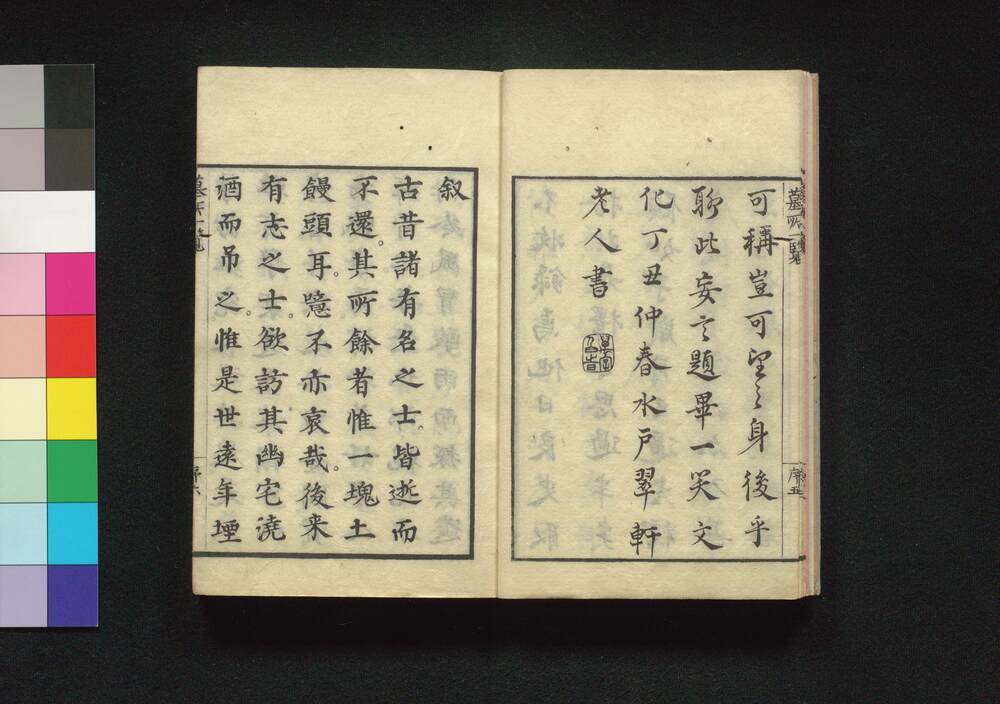 墓所一覧
序五
可稱豈可望之身後乎
聊此妄言題畢一笑文
化丁丑仲春水戸翠軒
老人書
叙
古昔諸有名之士。皆逝而
不還。其所餘者惟一塊土
饅頭耳。噫不亦哀哉。後来
有志之士。欲訪其幽宅澆
酒而吊之。惟是世遠年堙
墓所一覧
序六